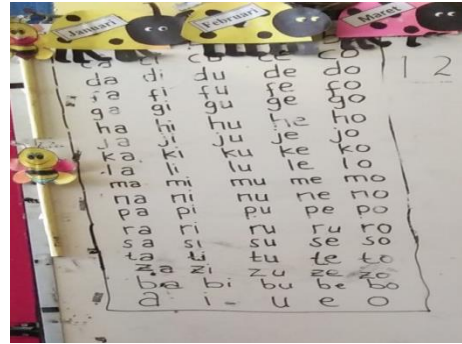 Januari Februari Maret
ca ci cu ce co
da di du de do
fa fi fu fe fo
ga gi gu ge go
ha hi hu he ho
ja ji ju je jo
ka ki ku ke ko
la li lu le lo
ma mi mu me mo
na ni nu ne no
pa pi pu pe po
ra ri ru ru ro
sa si su se so
ta ti tu te to
za zi zu ze zo
ba bi bu be bo
a i u e o
1 2